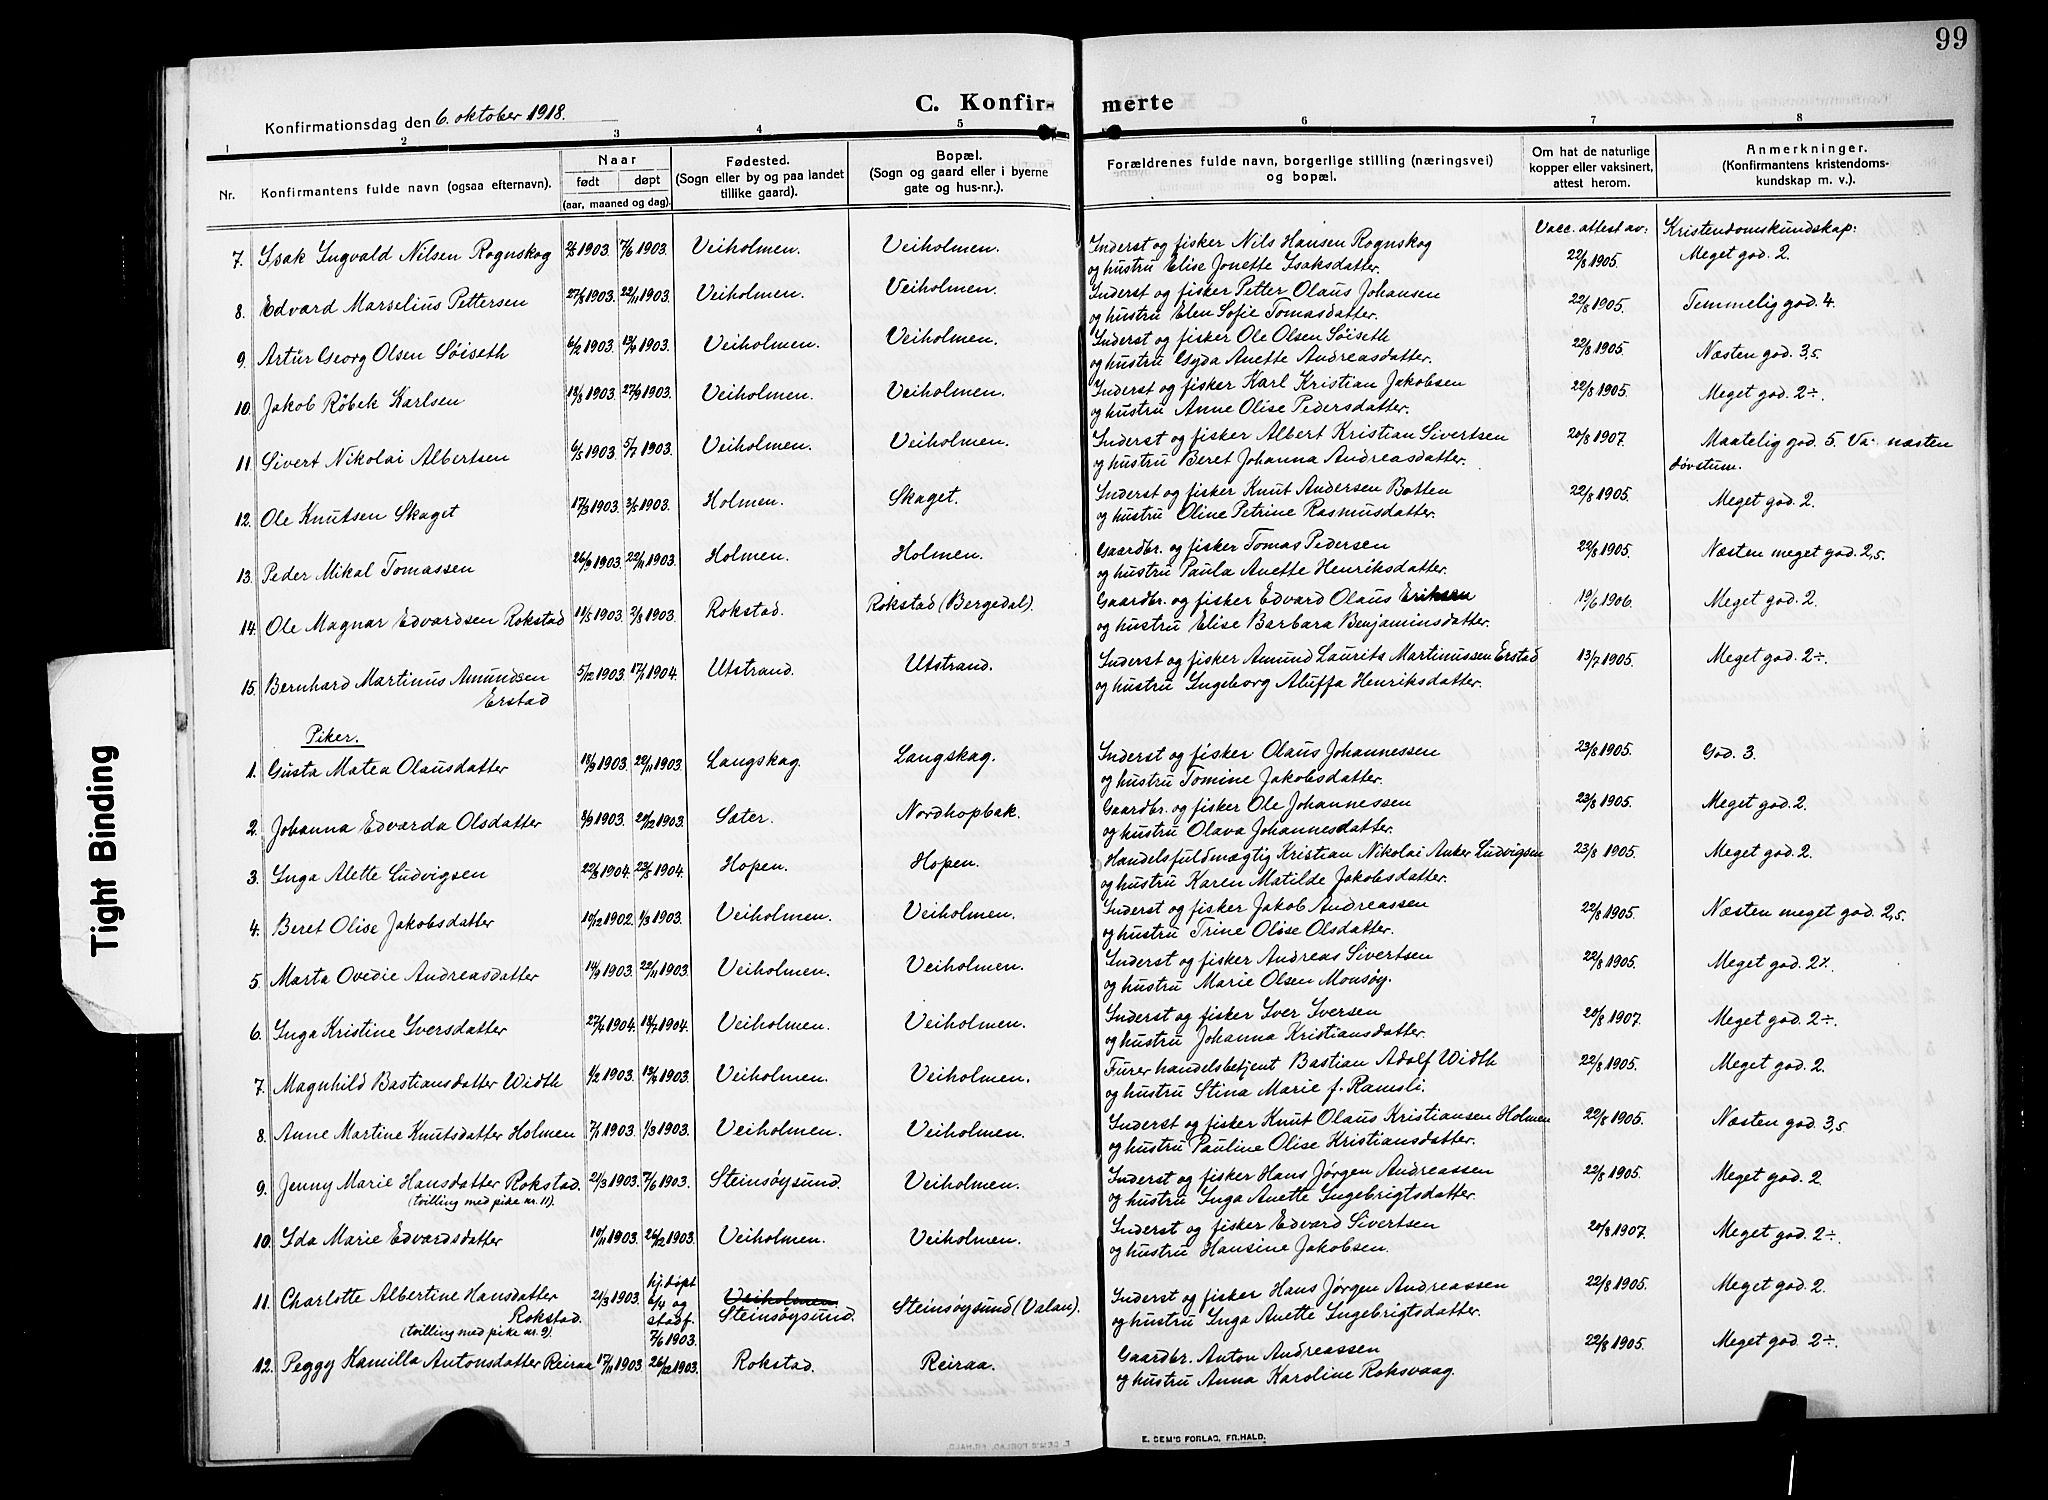 99
C. Konfirmerte
Konfirmationsdag den 6. oktober 1918.
1 2 3 4 5 6 7 8
Nr. Konfirmantens fulde navn (ogsaa efternavn). Naar født døpt (aar, maaned og dag). Fødested. (Sogn eller by og paa landet tillike gaard). Bopæl. (Sogn og gaard eller i byerne gate og hus-nr.). Forældrenes fulde navn, borgerlige stilling (næringsvei) og bopæl. Om hat de naturlige kopper eller vaksinert, attest herom. Anmerkninger. (Konfirmantens kristendomskundskap m. v.).
Vacc. attest av: Kristendomskundskap:
7. Isak Ingvald Nilsen Rognskog 1903. 7/6 1903. Veiholmen. Veiholmen. Inderst og fisker Nils Hansen Rognskog 22/8 1905. Meget god. 2.
og hustru Elise Jonette Isaksdatter.
8. Edvard Marselius Pettersen 1903. 22/11 1903. Veiholmen. Veiholmen. Inderst og fisker Petter Olaus Johansen 22/8 1905. Temmelig god. 4.
og hustru Elen Sofie Tomasdatter.
9. Artur Georg Olsen Søiseth 6/2 1903. 13/4 1903. Veiholmen. Veiholmen. Inderst og fisker Ole Olsen Søiseth 22/8 1905. Næsten god. 3,5.
og hustru Gyda Anette Andreasdatter.
10. Jakob Røbek Karlsen 1903. 27/9 1903. Veiholmen. Veiholmen. Inderst og fisker Karl Kristian Jakobsen 22/8 1905. Meget god. 2÷.
og hustru Anne Olise Pedersdatter.
11. Sivert Nikolai Albertsen 6/5 1903. 5/7 1903. Veiholmen. Veiholmen. Inderst og fisker Albert Kristian Sivertsen 20/8 1907. Maatelig god. 5. Va næsten
og hustru Beret Johanna Andreasdatter. døvstum.
12. Ole Knutsen Skaget 17/3 1903. 3/5 1903. Holmen. Skaget. Inderst og fisker Knut Andersen Botten 22/8 1905. Meget god. 2.
og hustru Oline Petrine Rasmusdatter.
13. Peder Mikal Tomassen 26/9 1903. 22/11 1903. Holmen. Holmen. Gaardbr. og fisker Tomas Pedersen 22/8 1905. Næsten meget god. 2,5.
og hustru Paula Anette Henriksdatter.
14. Ole Magnar Edvardsen Rokstad 18/5 1903. 2/8 1903. Rokstad. Rokstad (Bergedal). Gaardbr. og fisker Edvard Olaus Eriksen 19/6 1906. Meget god. 2.
og hustru Elise Barbara Benjaminsdatter.
15. Bernhard Martinus Amundsen 5/12 1903. 17/1 1904. Utstrand. Utstrand. Inderst og fisker Amund Laurits Martinussen Erstad 13/7 1905. Meget god. 2÷.
Erstad og hustru Ingeborg Aluffa Henriksdatter.
Piker.
1. Gusta Matea Olausdatter 18/9 1903. 22/11 1903. Langskag. Langskag. Inderst og fisker Olaus Johannessen 23/8 1905. God. 3.
og hustru Tomine Jakobsdatter.
2. Johanna Edvarda Olsdatter 1903. 20/12 1903. Sæter. Nordhopbak. Gaardbr. og fisker Ole Johannessen 23/8 1905. Meget god. 2.
og hustru Olava Johannesdatter.
3. Inga Alette Ludvigsen 22/3 1904. 23/5 1904. Hopen. Hopen. Handelsfuldmægtig Kristian Nikolai Anker Ludvigsen 23/8 1905. Meget god. 2.
og hustru Karen Matilde Jakobsdatter.
4. Beret Olise Jakobsdatter 10/12 1902. 1/3 1903. Veiholmen. Veiholmen. Inderst og fisker Jakob Andreassen 22/8 1905. Næsten meget god. 2,5.
og hustru Trine Olise Olsdatter.
5. Marta Ovedie Andreasdatter 14/9 1903. 22/11 1903. Veiholmen. Veiholmen. Inderst og fisker Andreas Sivertsen 22/8 1905. Meget god. 2
og hustru Marie Olsen Monsøy.
6. Inga Kristine Iversdatter 27/4 1904. 1904. Veiholmen. Veiholmen. Inderst og fisker Iver Iversen 20/8 1907. Meget god. 2÷.
og hustru Johanna Kristiansdatter.
7. Magnhild Bastiansdatter Width 1/2 1903. 1903. Veiholmen. Veiholmen. Furer handelsbetjent Bastian Adolf Width 22/8 1905. Meget god. 2.
og hustru Stina Marie f. Ramsli.
8. Anne Martine Knutsdatter Holmen 7/1 1903. 1/3 1903. Veiholmen. Veiholmen. Inderst og fisker Knut Olaus Kristiansen Holmen 22/8 1905. Næsten god. 3,5.
og hustru Pauline Olise Kristiansdatter.
9. Jenny Marie Hansdatter Rokstad. 21/3 1903. 7/6 1903. Steinsøysund. Veiholmen. Inderst og fisker Hans Jørgen Andreassen 22/8 1905. Meget god. 2.
(tvilling med pike nr. 11). og hustru Inga Anette Ingebrigtsdatter.
10. Ida Marie Edvardsdatter 10/11 1903. 26/12 1903. Veiholmen. Veiholmen. Inderst og fisker Edvard Sivertsen 20/8 1907. Meget god. 2÷.
og hustru Hansine Jakobsen.
11. Charlotte Albertine Hansdatter 21/3 1903. hj. døpt 5/4 og stadf. 7/6 1903. Veiholmen. Steinsøysund. Steinsøysund (Valan). Inderst og fisker Hans Jørgen Andreassen 22/8 1905. Meget god. 2.
Rokstad. og hustru Inga Anette Ingebrigtsdatter.
(tvilling med pike nr. 9).
12. Peggy Kamilla Antonsdatter Reiraa 17/11 1903 26/12 1903. Rokstad. Reiraa. Gaardbr. Anton Andreassen 22/8 1905. Meget god. 2÷.
og hustru Anna Karoline Roksvaag.
E. SEM'S FORLAG, FR.HALD.
Tight Binding